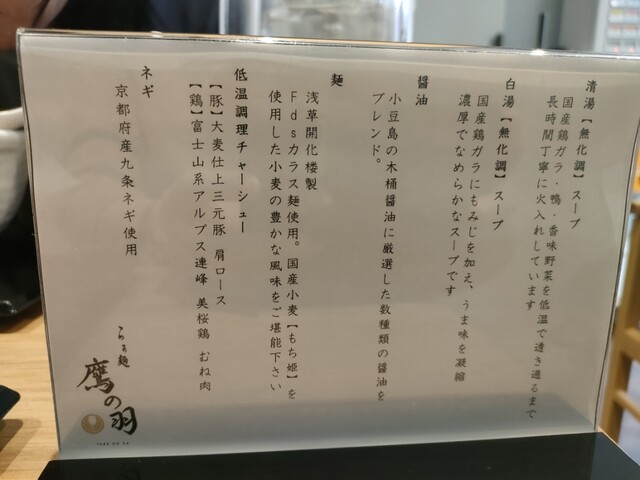 清湯【無化調】スープ
国産鶏ガラ・鴨・香味野菜を低温で透き通るまで
長時間丁寧に火入れしています
白湯【無化調】スープ
国産鶏ガラにもみじを加え、うま味を凝縮
濃厚でなめらかなスープです
醤油
小豆島の木桶醤油に厳選した数種類の醤油を
ブレンド。
麺
浅草開化楼製
Fdsカラス麺使用。国産小麦【もち姫】を
使用した小麦の豊かな風味をご堪能下さい
低温調理チャーシュー
【豚】大麦仕上三元豚 肩ロース
【鶏】富士山系アルプス連峰 美桜鶏 むね肉
ネギ
京都府産九条ネギ使用
らぁ麺
鷹の羽